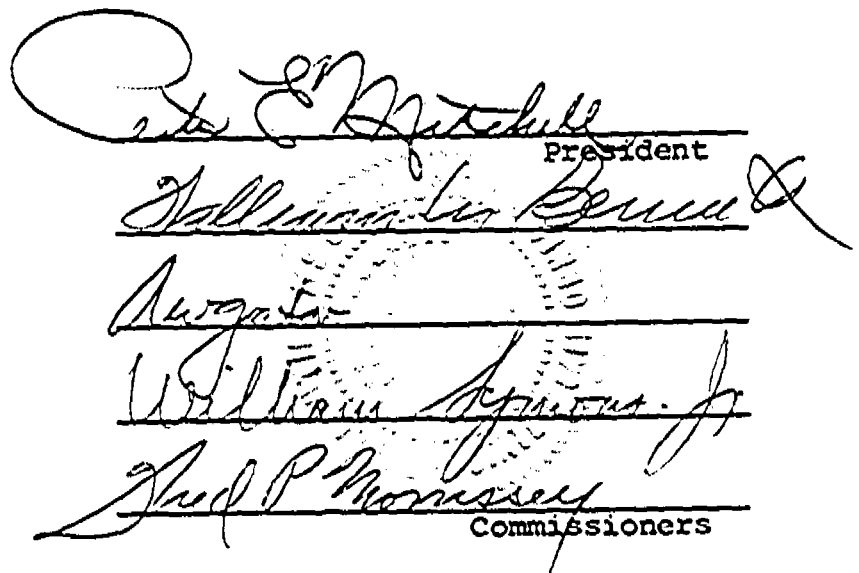 Peter E Mitchell
President
William M. Bennett
William Symons. Jr
Fred P Morrissey
Commissioners